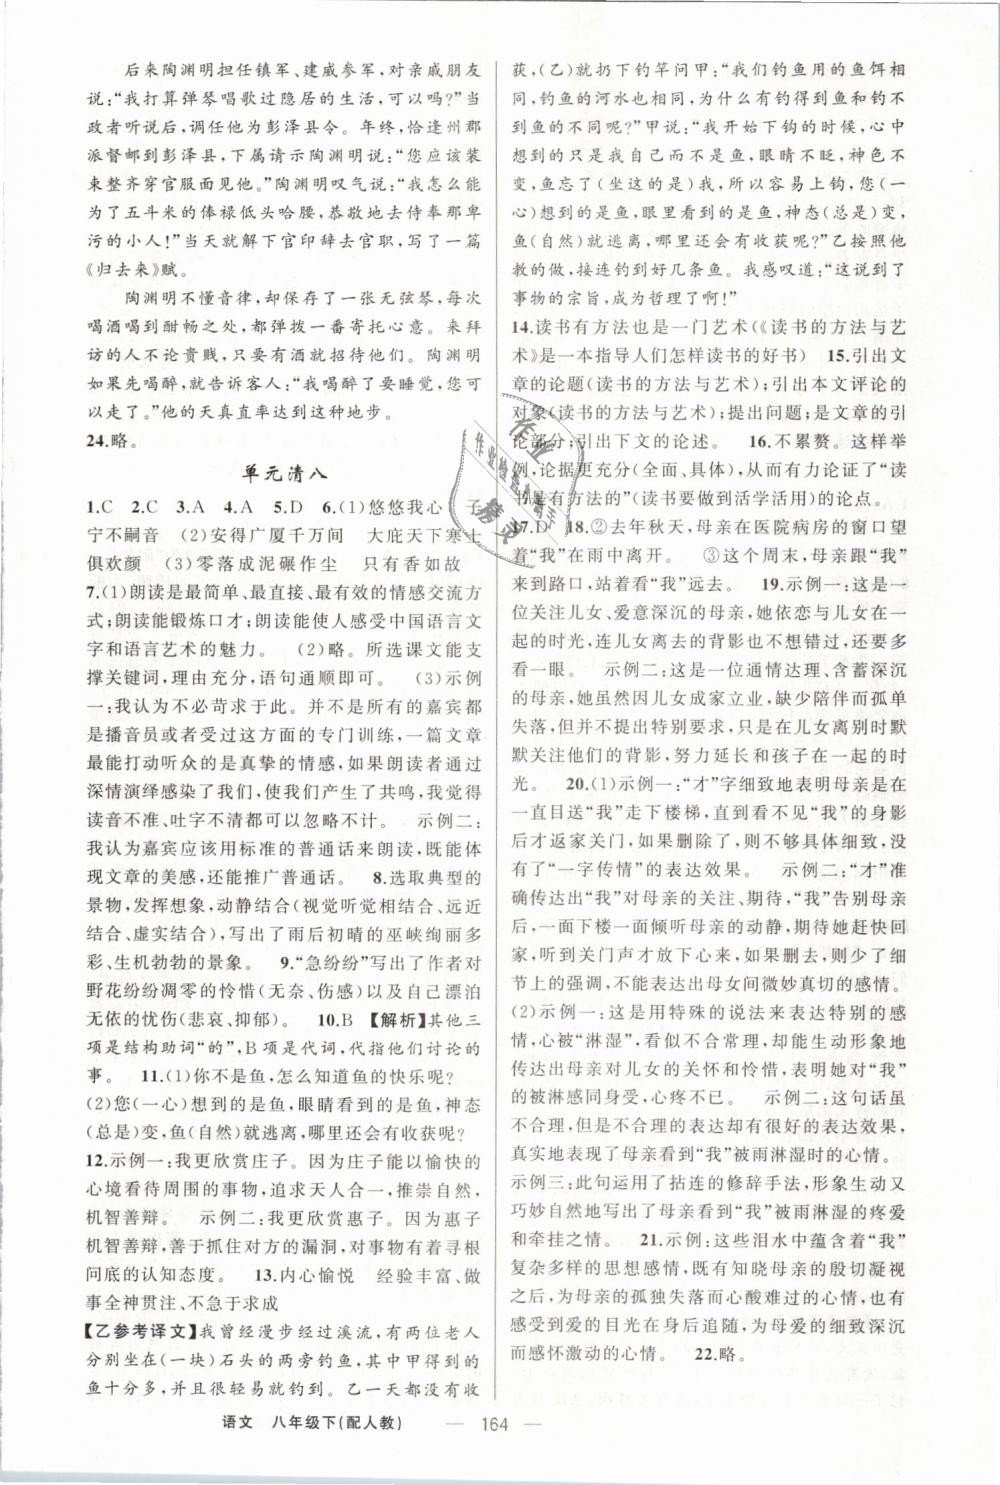 后来陶渊明担任镇军、建威参军,对亲戚朋友
说:“我打算弹琴唱歌过隐居的生活,可以吗?”当
政者听说后,调任他为彭泽县令。年终,恰逢州郡
派督邮到彭泽县,下属请示陶渊明说:“您应该装
束整齐穿官服面见他。”陶渊明叹气说:“我怎么能
为了五斗米的俸禄低头哈腰,恭敬地去侍奉那卑
污的小人!”当天就解下官印辞去官职,写了一篇
《归去来》赋。
陶渊明不懂音律,却保存了一张无弦琴,每次
喝酒喝到酣畅之处,都弹拨一番寄托心意。来拜
访的人不论贵贱,只要有酒就招待他们。陶渊明
如果先喝醉,就告诉客人:“我喝醉了要睡觉,您可
以走了。”他的天真直率达到这种地步。
24.略。
单元清八
1.C 2.C 3.A 4.A 5.D 6.(1)悠悠我心 子
宁不嗣音 (2)安得广厦千万间 大庇天下寒士
俱欢颜 (3)零落成泥碾作尘 只有香如故
7.(1)朗读是最简单、最直接、最有效的情感交流方
式;朗读能锻炼口才;朗读能使人感受中国语言文
字和语言艺术的魅力。 (2)略。所选课文能支
撑关键词,理由充分,语句通顺即可。 (3)示例
一:我认为不必苛求于此。并不是所有的嘉宾都
是播音员或者受过这方面的专门训练,一篇文章
最能打动听众的是真挚的情感,如果朗读者通过
深情演绎感染了我们,使我们产生了共鸣,我觉得
读音不准、吐字不清都可以忽略不计。 示例二:
我认为嘉宾应该用标准的普通话来朗读,既能体
现文章的美感,还能推广普通话。 8.选取典型的
景物,发挥想象,动静结合(视觉听觉相结合、远近
结合、虚实结合),写出了雨后初晴的巫峡绚丽多
彩、生机勃勃的景象。 9.“急纷纷”写出了作者对
野花纷纷凋零的怜惜(无奈、伤感)以及自己漂泊
无依的忧伤(悲哀、抑郁)。 10.B 【解析】其他三
项是结构助词“的”,B项是代词,代指他们讨论的
事。 11.(1)你不是鱼,怎么知道鱼的快乐呢?
(2)您(一心)想到的是鱼,眼睛看到的是鱼,神态
(总是)变,鱼(自然)就逃离,哪里还会有收获呢?
12.示例一:我更欣赏庄子。因为庄子能以愉快的
心境看待周围的事物,追求天人合一,推崇自然,
机智善辩。 示例二:我更欣赏惠子。因为惠子
机智善辩,善于抓住对方的漏洞,对事物有着寻根
问底的认知态度。 13.内心愉悦 经验丰富、做
事全神贯注、不急于求成
【乙参考译文】我曾经漫步经过溪流,有两位老人
分别坐在(一块)石头的两旁钓鱼,其中甲得到的
鱼十分多,并且很轻易就钓到。乙一天都没有收
获,(乙)就扔下钓竿问甲:“我们钓鱼用的鱼饵相
同,钓鱼的河水也相同,为什么有钓得到鱼和钓不
到鱼的不同呢?”甲说:“我开始下钩的时候,心中
想到的只是我自己而不是鱼,眼睛不眨,神色不
变,鱼忘了(害怕)我,所以容易上钩,您(一
心)想到的是鱼,眼里看到的是鱼,神态(总是)变,
鱼(自然)就逃离,哪里还会有收获呢?”乙按照他
教的做,接连钓到好几条鱼。我感叹道:“这说到了
事物的宗旨,成为哲理了啊!”
14.读书有方法也是一门艺术(《读书的方法与艺
术》是一本指导人们怎样读书的好书) 15.引出文
章的论题(读书的方法与艺术);引出本文评论的
对象(读书的方法与艺术);提出问题;是文章的引
论部分;引出下文的论述。 16.不累赘。这样举
例,论据更充分(全面、具体),有力论证了“读
书是有方法的”(读书要做到活学活用)的论点。
17.D 18.②去年秋天,母亲在医院病房的窗口望
着“我”在雨中离开。 ③这个周末,母亲跟“我”
来到路口,站着看“我”远去。 19.示例一:这是一
位关注儿女、爱意深沉的母亲,她依恋与儿女在一
起的时光,连儿女离去的背影也不想错过,还要多
看一眼。 示例二:这是一位通情达理、含蓄深沉
的母亲,她虽然因儿女成家立业,缺少陪伴而孤单
失落,但并不提出特别要求,只是在儿女离别时默
默关注他们的背影,努力延长和孩子在一起的时
光。 20.(1)示例一:“才”字细致地表明母亲是在
一直目送“我”走下楼梯,直到看不见“我”的身影
后才返家关门,如果删除了,则不够具体细致,没
有了“一字传情”的表达效果。 示例二:“才”准
确传达出“我”对母亲的关注、期待,“我”告别母亲
后,一面下楼一面倾听母亲的动静,期待她赶快回
家,听到关门声才放下心来,如果删除,则少了细
节上的强调,不能表达出母女间微妙真切的感情。
(2)示例一:这是用特殊的说法来表达特别的感
情,心被“淋湿”,看似不合常理,却能生动形象地
传达出母亲对儿女的关怀和怜爱,甚至能把“我”
的被淋感同身受,心疼不已。 示例二:这句话虽
不合理,但是不合理的表达却有很好的表达效果,
真实地表现了母亲看到“我”被雨淋湿时的心情。
示例三:此句运用了拈连的修辞手法,形象生动又
巧妙自然地写出了母亲看到“我”被雨淋湿的疼爱
和牵挂之情。 21.示例:这些泪水中蕴含着“我”
复杂多样的思想感情,既有知晓母亲的殷切凝视
之后,为母亲的孤独失落而心酸难过的心情,也有
感受到爱的目光在身后追随,为母爱的细致深沉
而感怀激动的心情。 22.略。
作业
作业检查小帮手
精灵
语文 八年级下(配人教) — 164 —